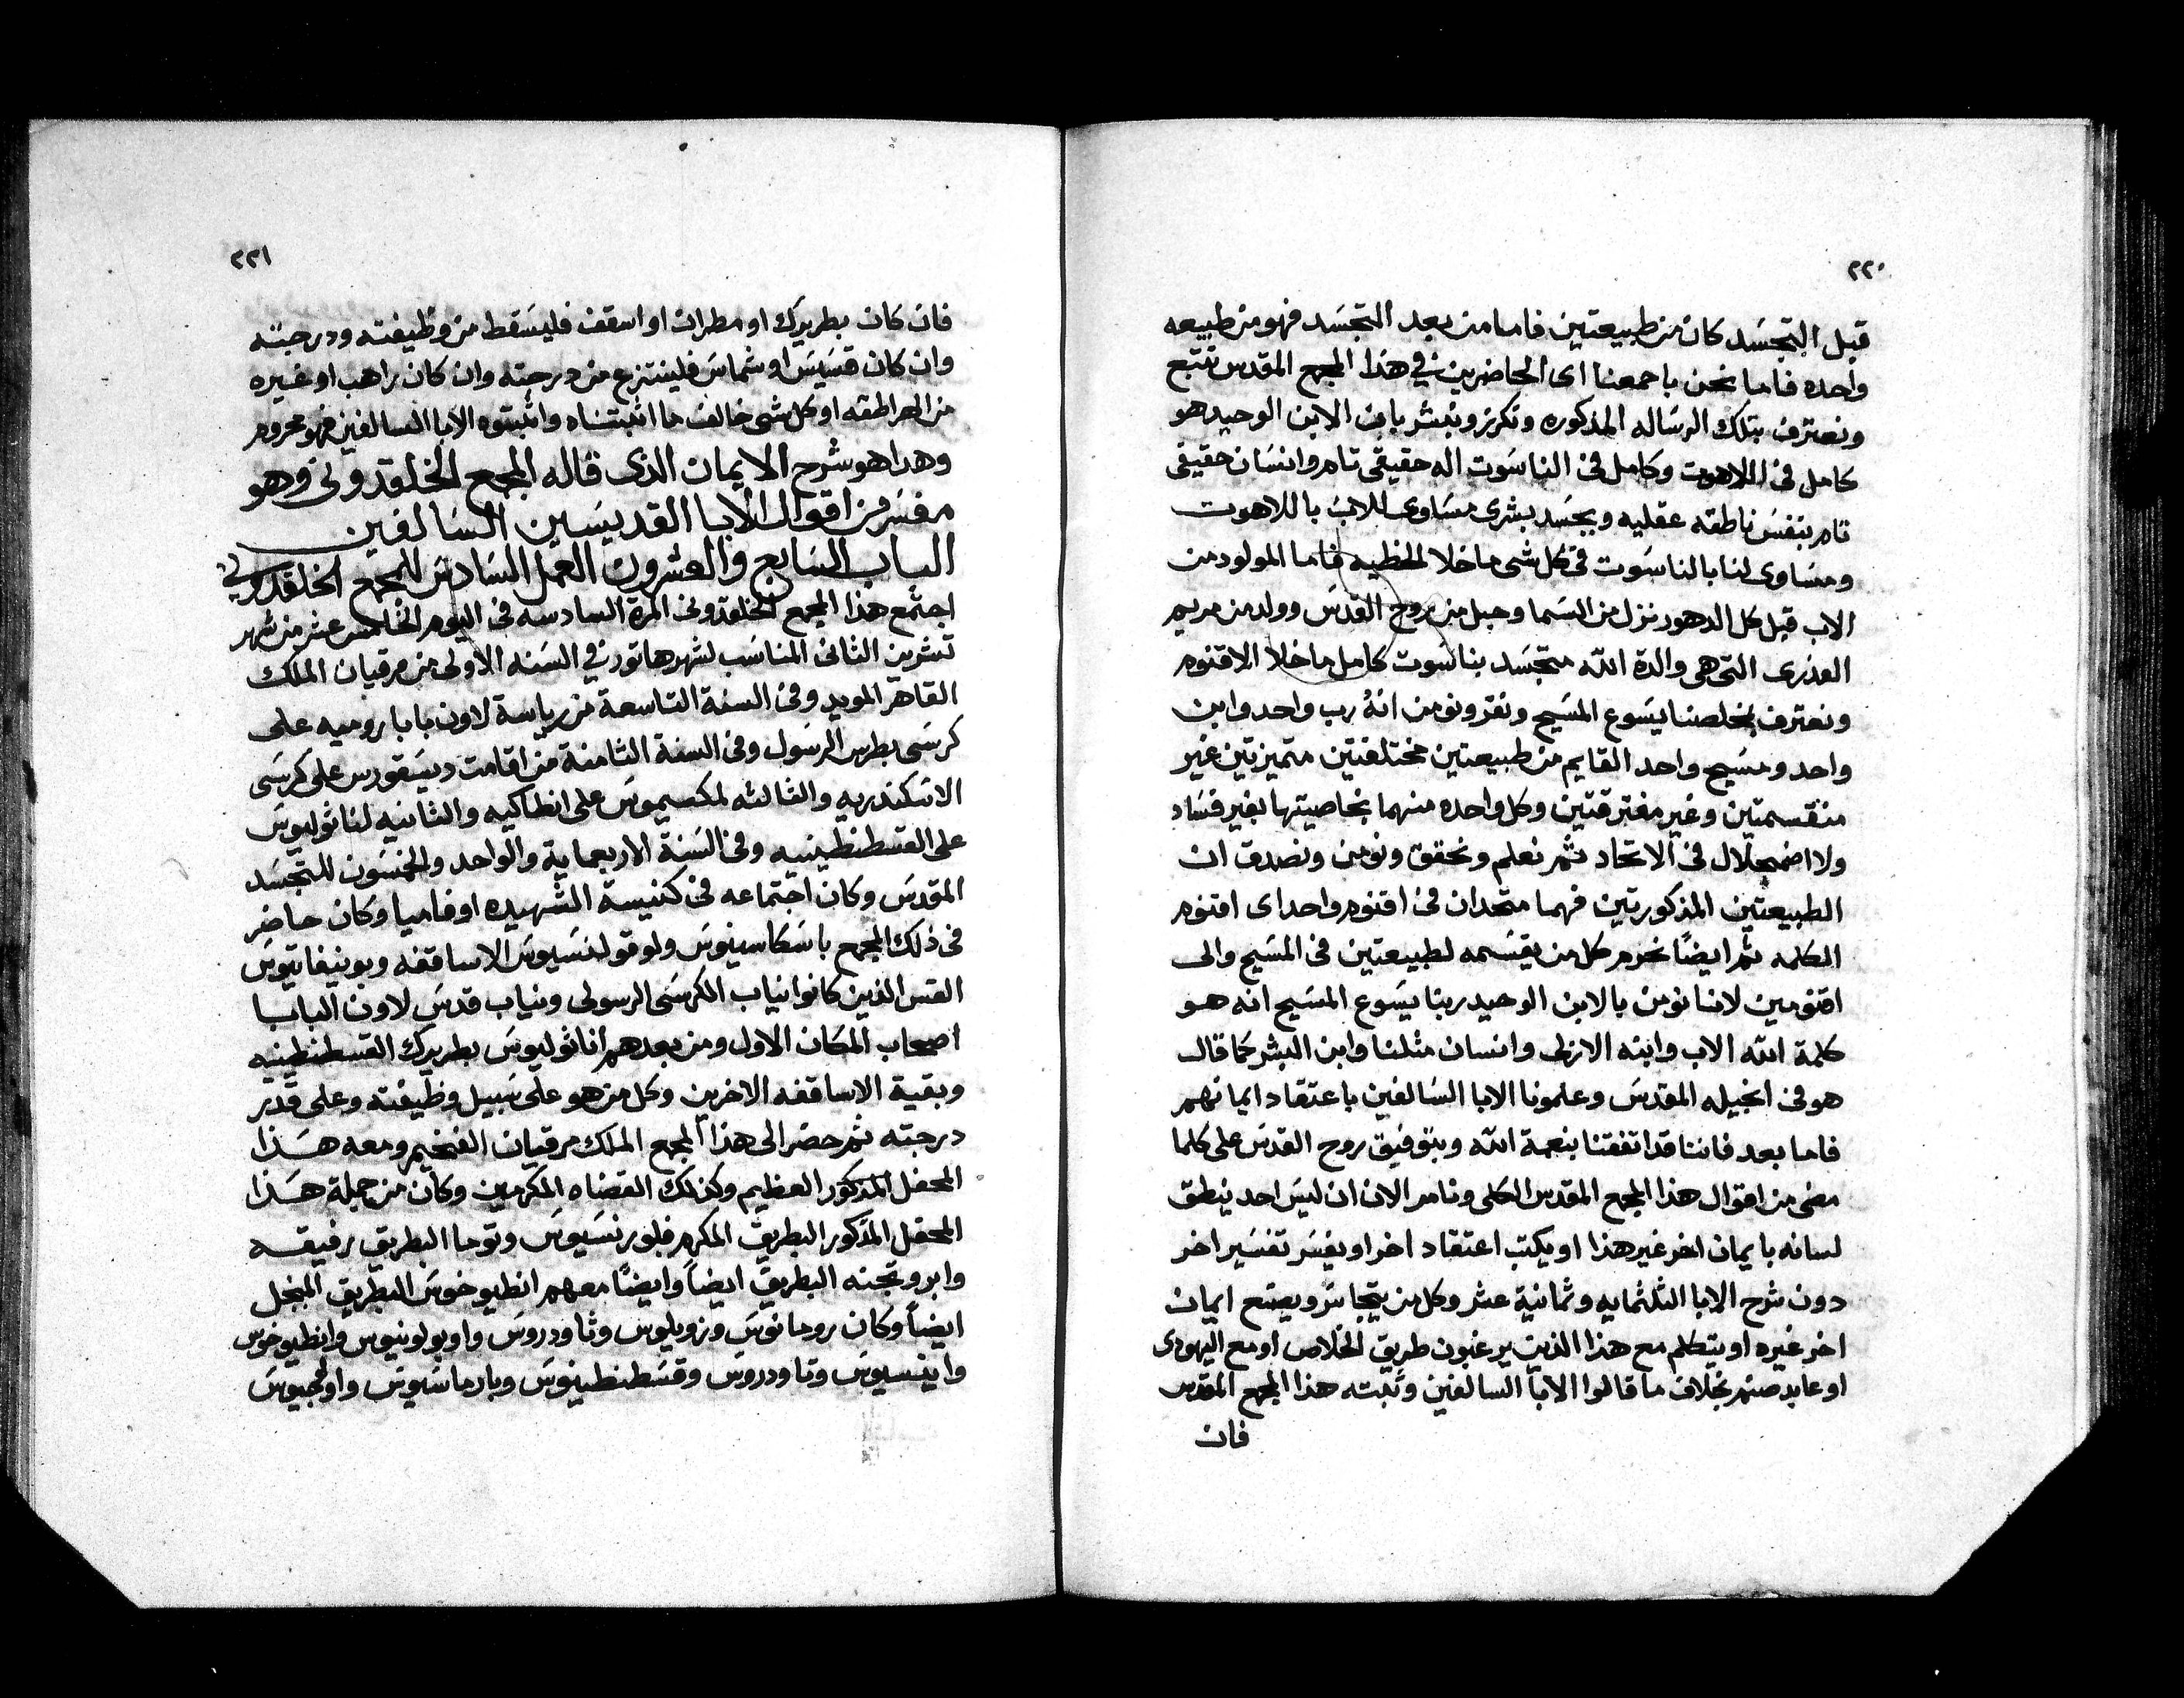 ٢٢٠
قبل التجسَد كان من طبيعتين فاما من بعد التجسَد فهو من طبيعه
واحده فاما نحن باجمعنا اى الحاضرين في هذا المجمع المقدس نتبع
ونعترف بتلك الرساله المذكوره ونكرز ونبشر بان الابن الوحيد هو
كامل فى اللاهوت وكامل فى الناسَوت اله حقيقى تام وانسَان حقيقى
تام بنفسَ ناطقه عقليه وبجسَد بشرى مسَاوى للاب باللاهوت
ومسَاوى لنا بالناسَوت فى كل شى ما خلا الخطيه فاما المولود من
الاب قبل كل الدهور نزل من السَما وحبل من روح القدسَ وولد من مريم
العذرى التى هى والدة الله متجسَد بناسَوت كامل ما خلا الاقنوم
ونعترف بمخلصنا يسَوع المسَيح ونقر ونومن انهُ رب واحد وابن
واحد ومسَيح واحد القايم من طبيعتين مختلفتين متميزتين غير
منقسمتين وغير مفترقتين وكل واحده منهما بخاصيتها بغير فسَاد
ولا اضمحلال فى الاتحاد ثم نعلم ونحقق ونومن ونصدق ان
الطبيعتين المذكورتين فهما متحدان فى اقنوم واحد اى اقنوم
الكلمه ثم ايضًا نحرم كل من يقسَمه لطبيعتين فى المسَيح والى
اقنومين لاننا نومن بالابن الوحيد ربنا يسَوع المسَيح انه هو
كلمة الله الاب وابنه الازلى وانسان مثلنا وابن البشر كما قال
هو فى انجيله المقدسَ وعلمونا الابا السَالفين باعتقاد ايمانهم
فاما بعد فاننا قد اتفقنا بنعمة الله وبتوفيق روح القدسَ على كلما
مضى من اقوال هذا المجمع المقدس الكلى ونامر الان ان ليسَ احد ينطق
لسانه بايمان اخر غير هذا او يكتب اعتقاد اخر او يفسَر تفسَير اخر
دون شرح الابا الثلثمايه وثمانية عشر وكل من يتجاسَر ويصنع ايمان
اخر غيره او يتكلم مع هذا الذين يرغبون طريق الخلاص او مع اليهودى
او عابد صنم بخلاف ما قالوا الابا السالفين وثبته هذا المجمع المقدس
فان
٢٢١
فان كان بطريرك او مطران او اسقف فليسَقط من وظيفته ودرجته
وان كان قسَيسَ او شماسَ فلينتزع من درجته وان كان راهب او غيره
من الهراطقه او كل شى خالف ما اثبتناه واثبتوه الابا السالفين فهو محروم
وهدا هو شرح الايمان الذى قاله المجمع الخلقدونى وهو
مفسَر من اقوال الابا القديسَين السَالفين
الباب السَابع والعشرون العمل السَادسَ للمجمع الخلقدونى
اجتمع هذا المجمع الخلقدونى المرة السادسه فى اليوم الخامس عشر من شهر
تشرين الثانى المناسَب لشهر هاتور في السَنه الاولى من مرقيان الملك
القاهر المويد وفى السنة التاسعة من رياسة لاون بابا روميه على
كرسَى بطرس الرسَول وفى السنة الثامنة من اقامت ديسَقورس على كرسَى
الاسَكندريه والثالثه لمكسيموسَ على انطاكيه والثانيه لناثوليوسَ
على القسطنطينيه وفى السَنة الاربعماية والواحد والخمسَون للتجسَد
المقدسَ وكان اجتماعه فى كنيسة الشهيده اوفاميا وكان حاضر
فى ذلك المجمع باسَكاسينوسَ ولوقولنسَيوسَ الاساقفه وبونيفاتيوسَ
القس الذين كانوا نياب الكرسَى الرسولى ونياب قدسَ لاون البابا
اصحاب المكان الاول ومن بعدهم اناثوليوسَ بطريرك القسطنطينيه
وبقية الاساقفه الاخرين وكل من هو على سَبيل وظيفته وعلى قدر
درجته ثم حضر الى هذا المجمع الملك مرقيان الفخيم ومعه هذا
المحفل المذكور العظيم وكذلك القضاه المكرمين وكان من جملة هذا
المحفل المذكور البطريق المكرم فلورنسَيوسَ وتوما البطريق رفيقه
وابروتجنه البطريق ايضاً وايضًا معهم انطيوخوسَ البطريق المبجل
ايضاً وكان رومانوسَ وزويلوس وثاودروسَ وابولونيوس وانطيوخوس
وايفسيوسَ وتاودروسَ وقسَطنطينوسَ وبارماسَيوسَ واولجيوسَ